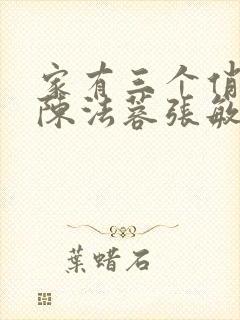 家有三个俏
陈法蓉张敏
葉蜡石